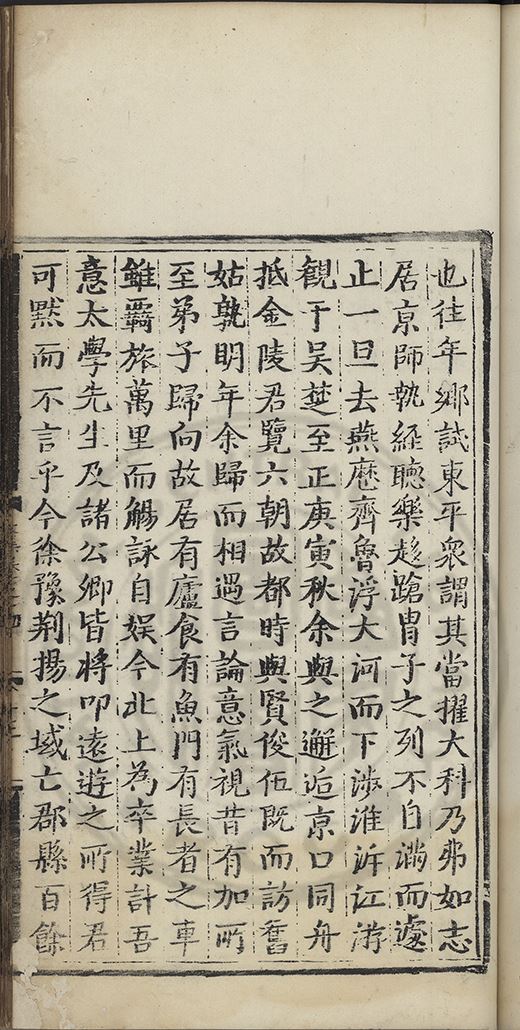 也往年鄉試東平衆謂其當擢大科乃弗如志
居京師執經聽樂趍蹌胄子之列不自満而遽
止一旦去燕歴齊魯浮大河而下渉淮泝江游
觀于吳楚至正庚寅秋余與之邂逅京口同舟
抵金陵君覽六朝故都時與賢俊伍既而訪舊
姑孰明年余歸而相遇言論意氣視昔有加所
至弟子歸向故居有廬食有魚門有長者之車
雖覊旅萬里而觴詠自娱今北上為卒業計吾
意太學先生及諸公卿皆將叩遠遊之所得君
可默而不言乎今徐豫荆揚之域亡郡縣百餘